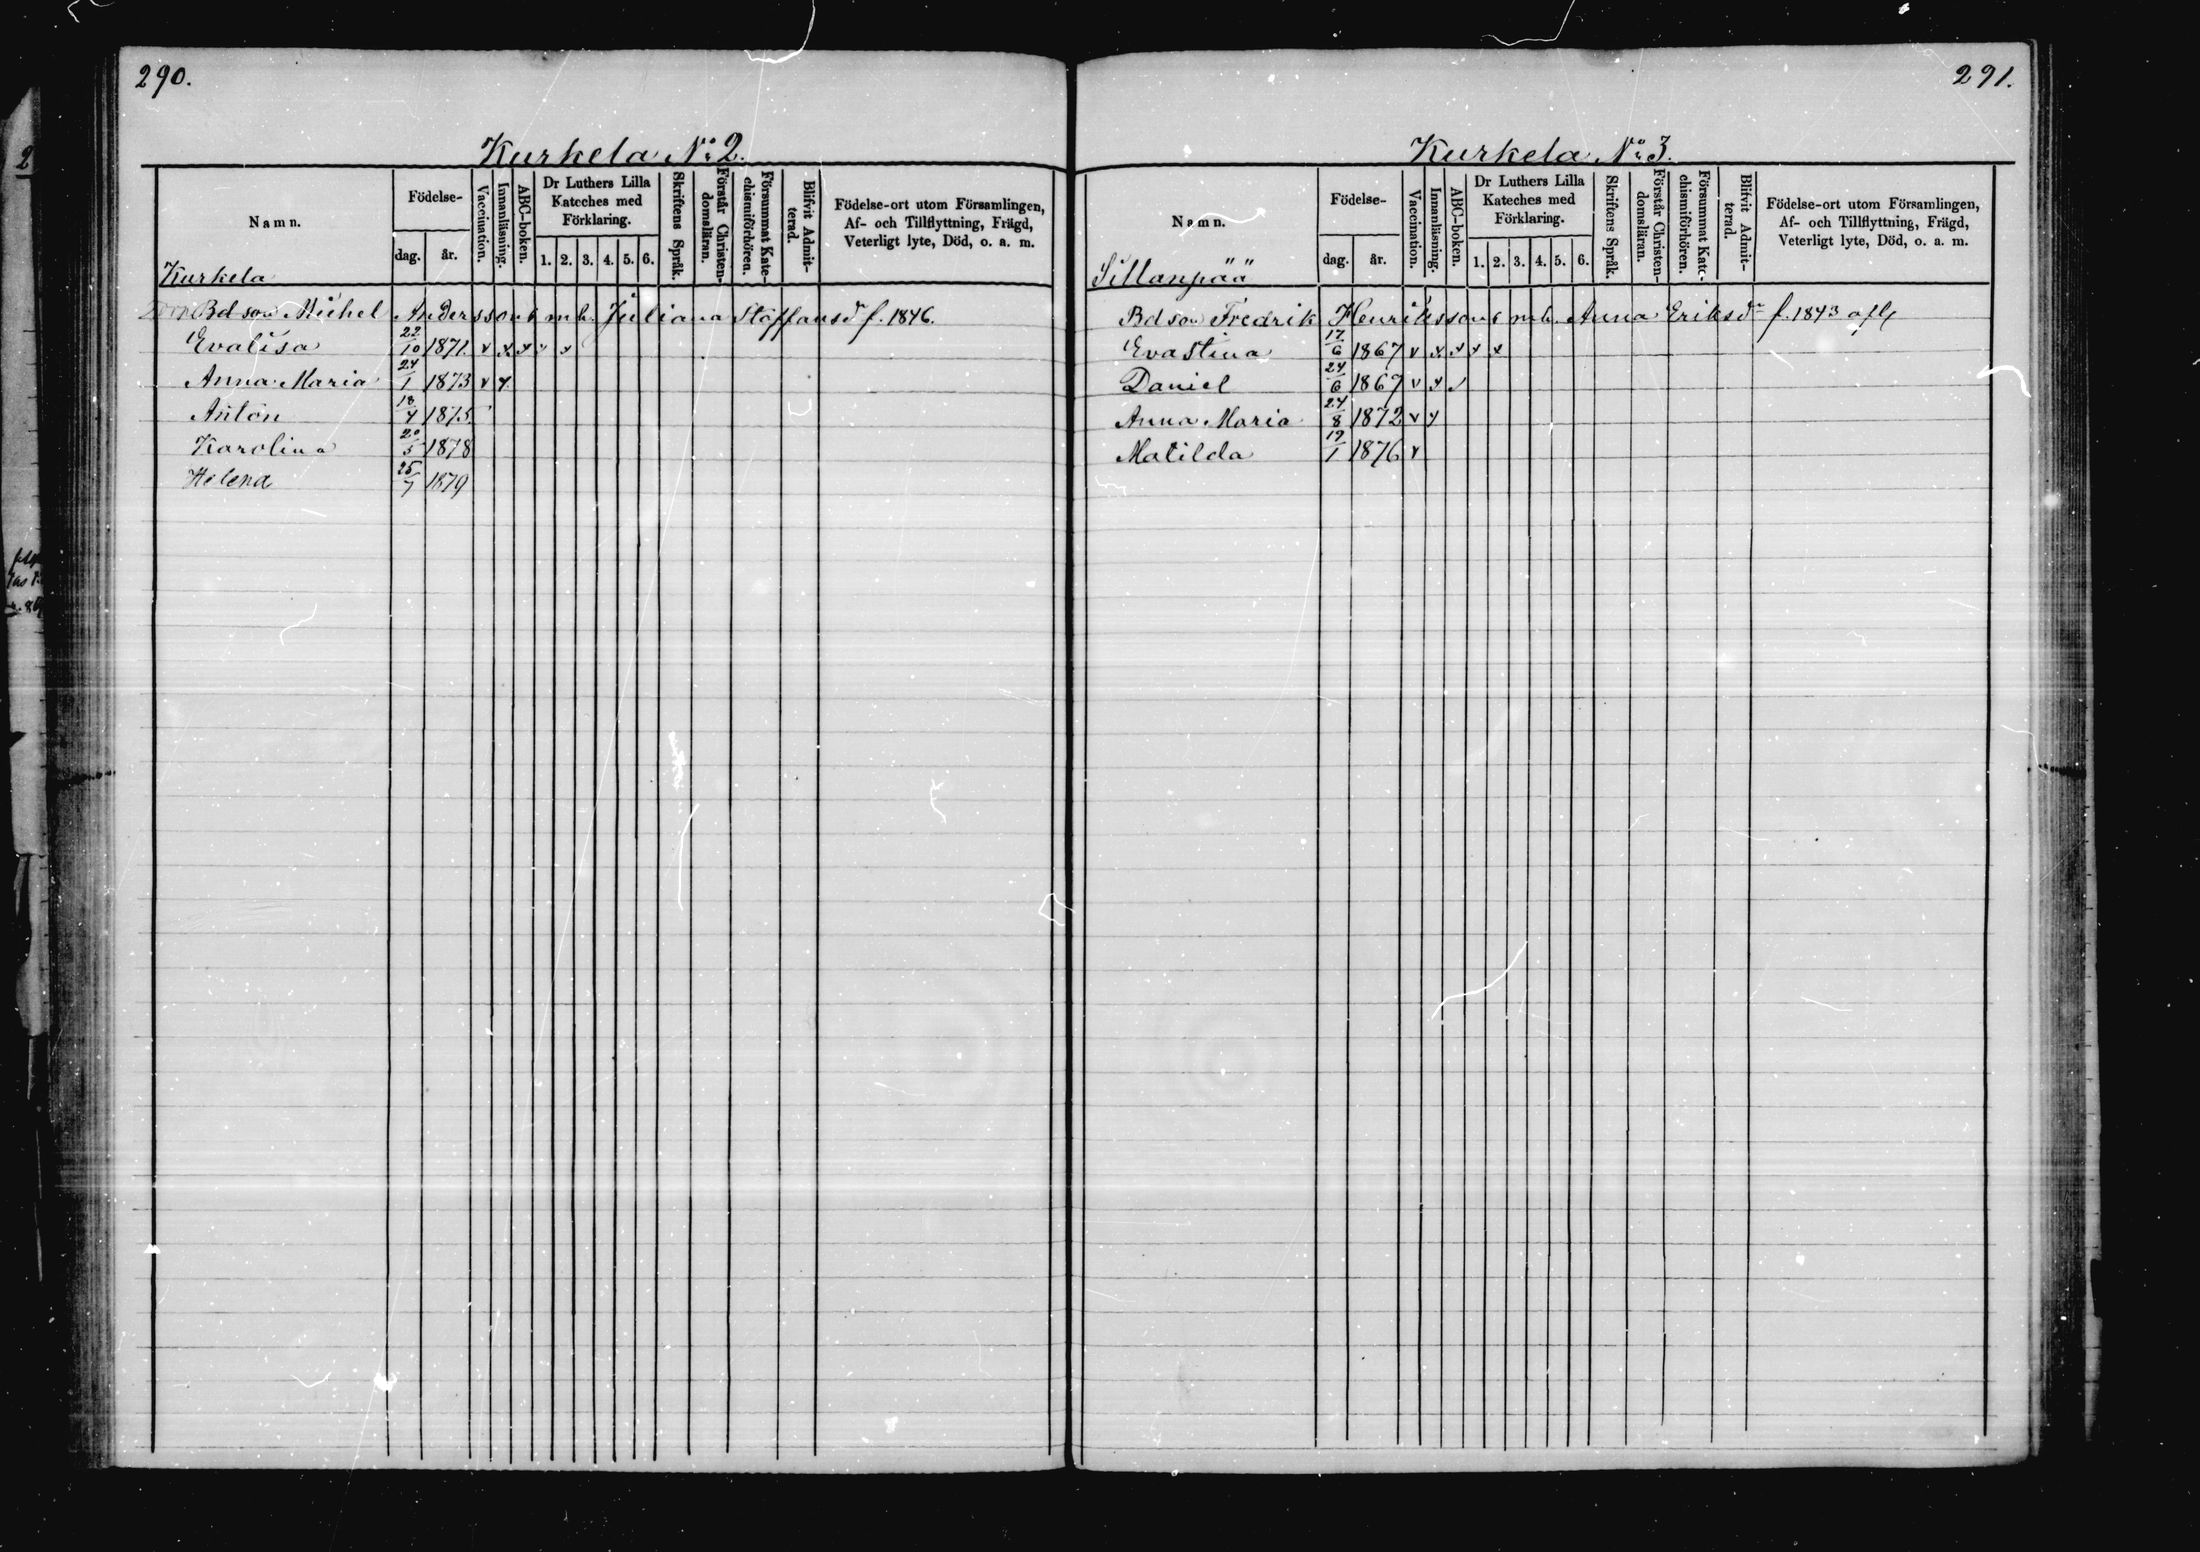 290.
Kurkela No 2.
Namn.
Födelse-
dag. år.
Vaccination.
Innanläsning.
ABC-boken.
Dr Luthers Lilla Kateches med Förklaring.
1. 2. 3. 4. 5. 6.
Skriftens Språk.
Förstår Christendomsläran.
Försummat Katechismiförhören.
Blifvit Admitterad.
Födelse-ort utom Församlingen,
Af- och Tillflyttning, Frägd,
Veterligt lyte, Död, o. a. m.
Kurkela
Bdson Michel Andersson o mh. Juliana Staffansdr f. 1846.
Evalisa 22/10 1871. v x x x x
Anna Maria 24/1 1873 v x
Anton 18/4 1875.
Karolina 20/5 1878
Helena 25/7 1879
291.
Kurkela No 3.
Namn.
Födelse-
dag. år.
Vaccination.
Innanläsning.
ABC-boken.
Dr Luthers Lilla Kateches med Förklaring.
1. 2. 3. 4. 5. 6.
Skriftens Språk.
Förstår Christendomsläran.
Försummat Katechismiförhören.
Blifvit Admitterad.
Födelse-ort utom Församlingen,
Af- och Tillflyttning, Frägd,
Veterligt lyte, Död, o. a. m.
Sillanpää
Bdson Fredrik Henriksson o mh. Anna Eriksdr f. 1843
Evastina 17/6 1867 v x x x x
Daniel 24/6 1869 v x /
Anna Maria 24/8 1872 v x
Matilda 19/1 1876 v